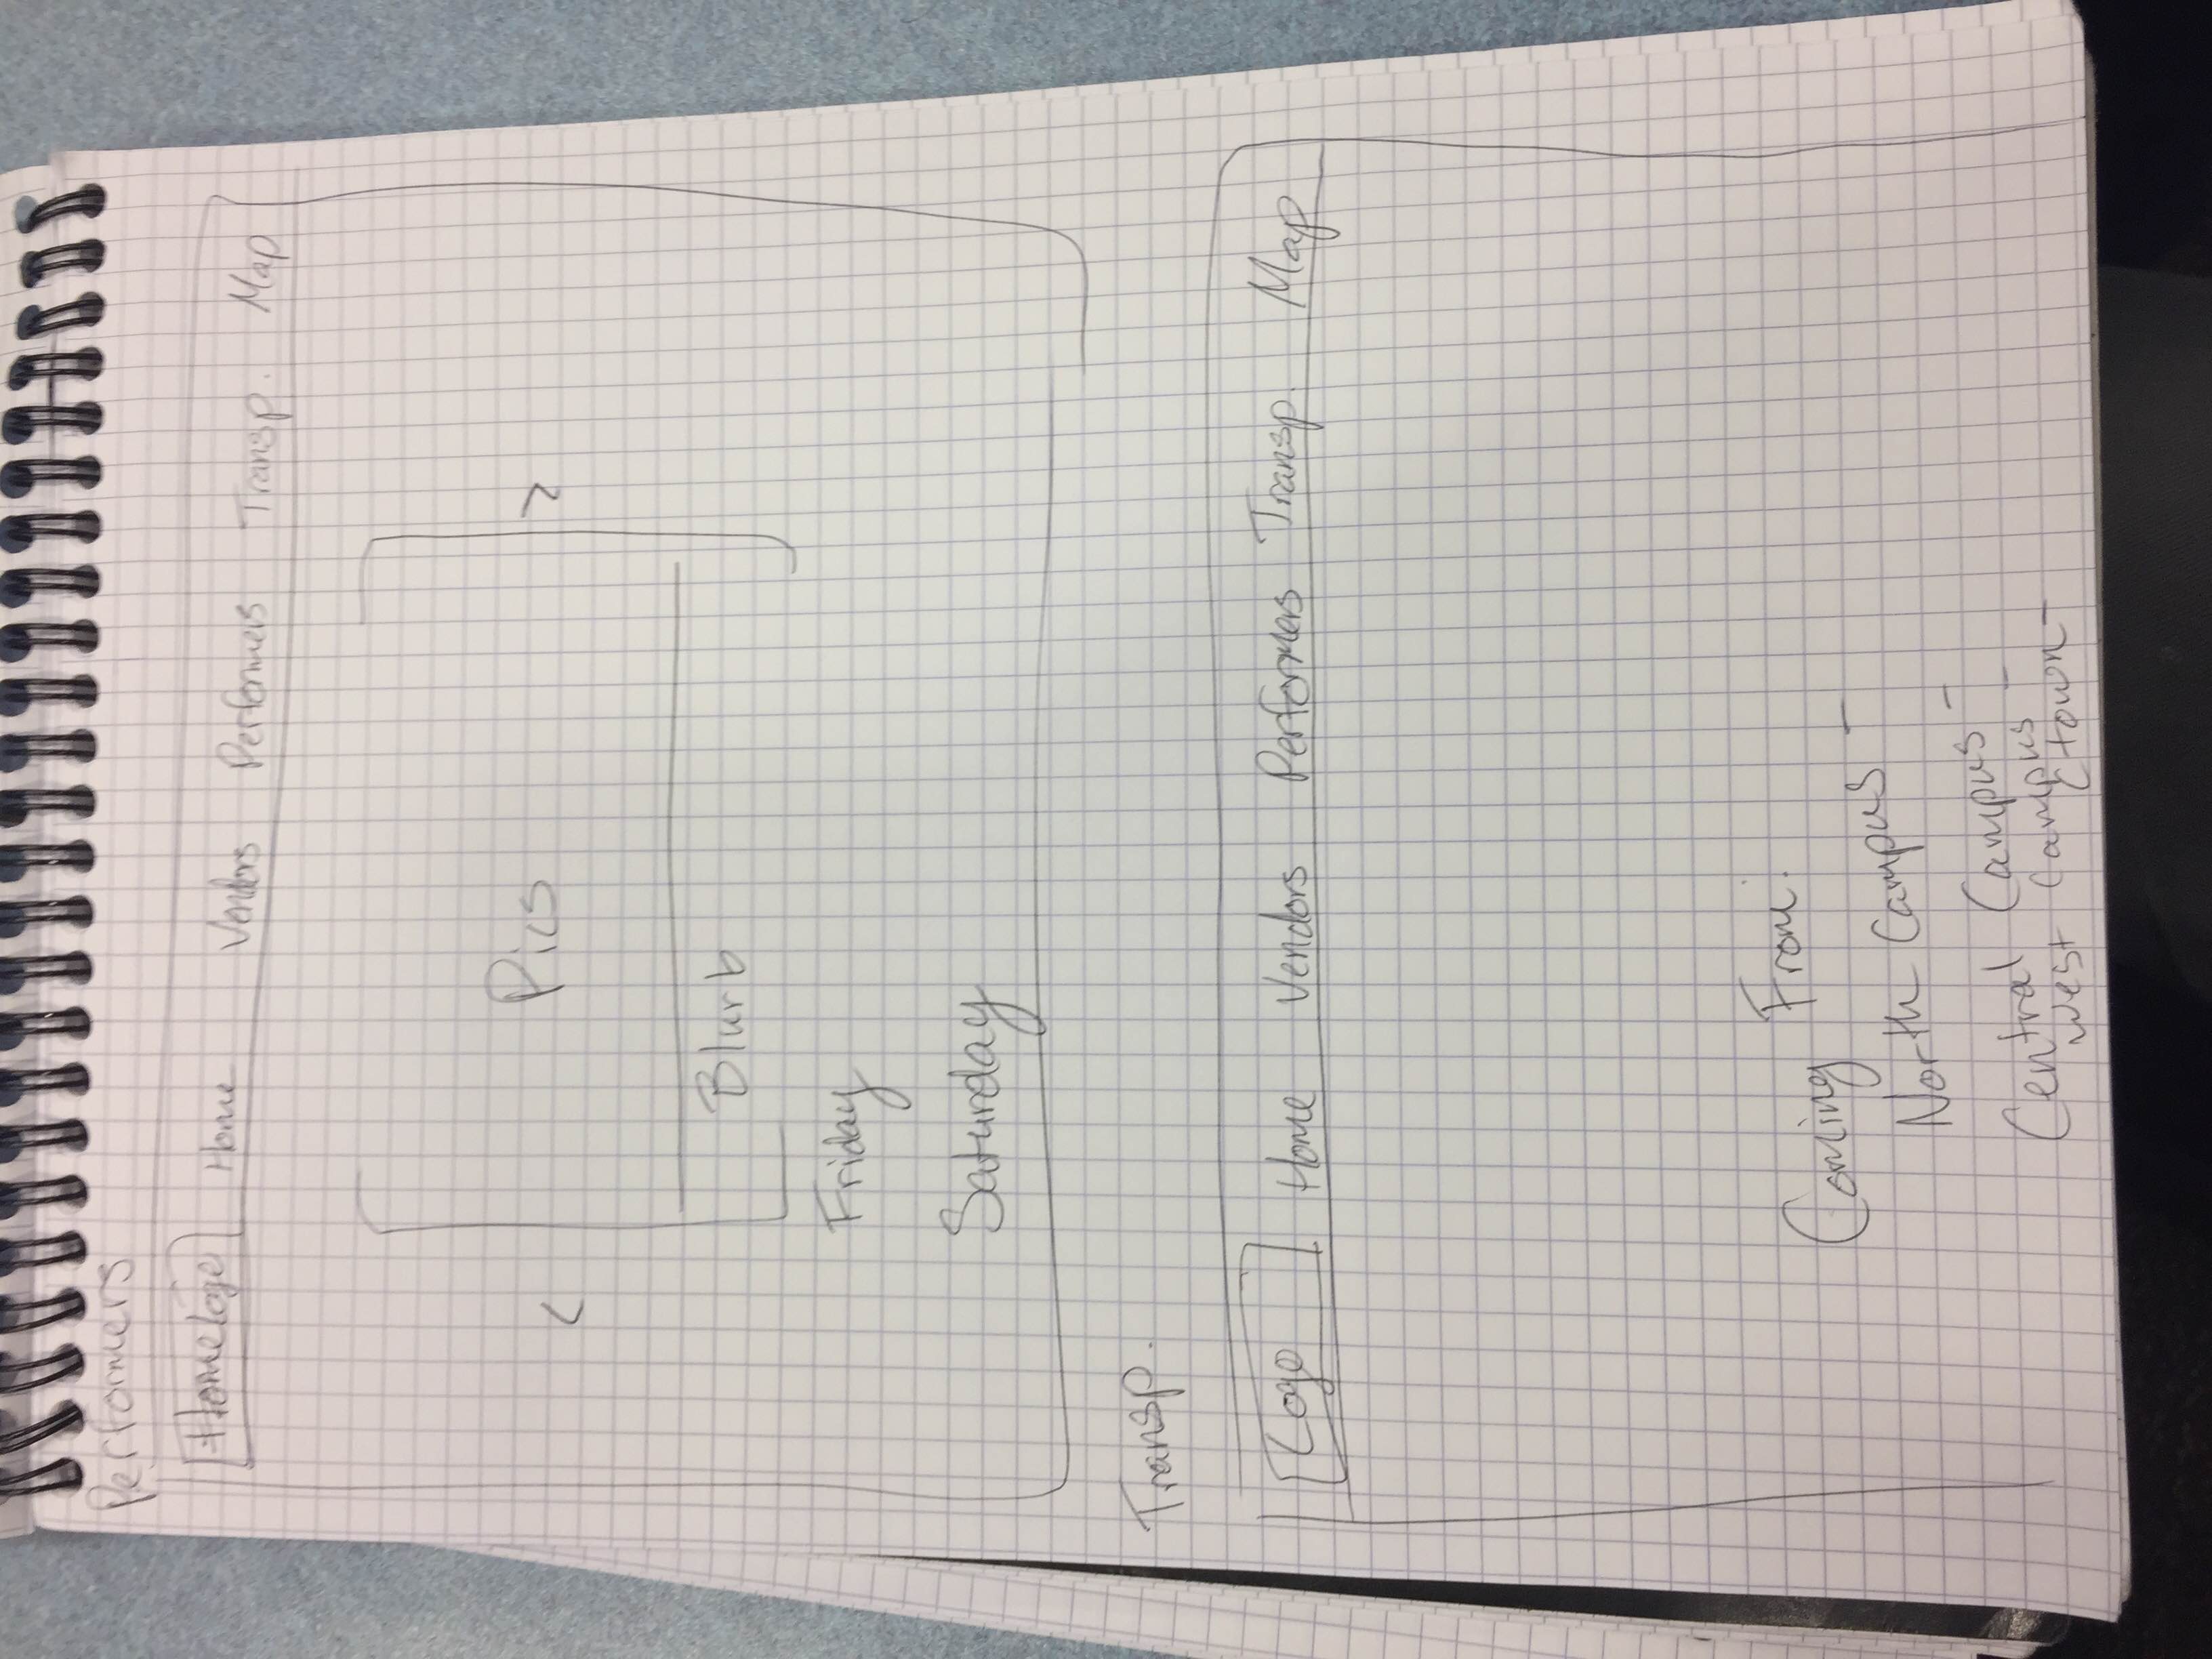 Performers
Home Logo Home Vendors Performers Transp. Map
< Pics >
Blurb
Friday
Saturday
Transp.
Logo Home Vendors Performers Transp. Map
Coming From:
North Campus –
Central Campus –
West Campus –
Ctown –